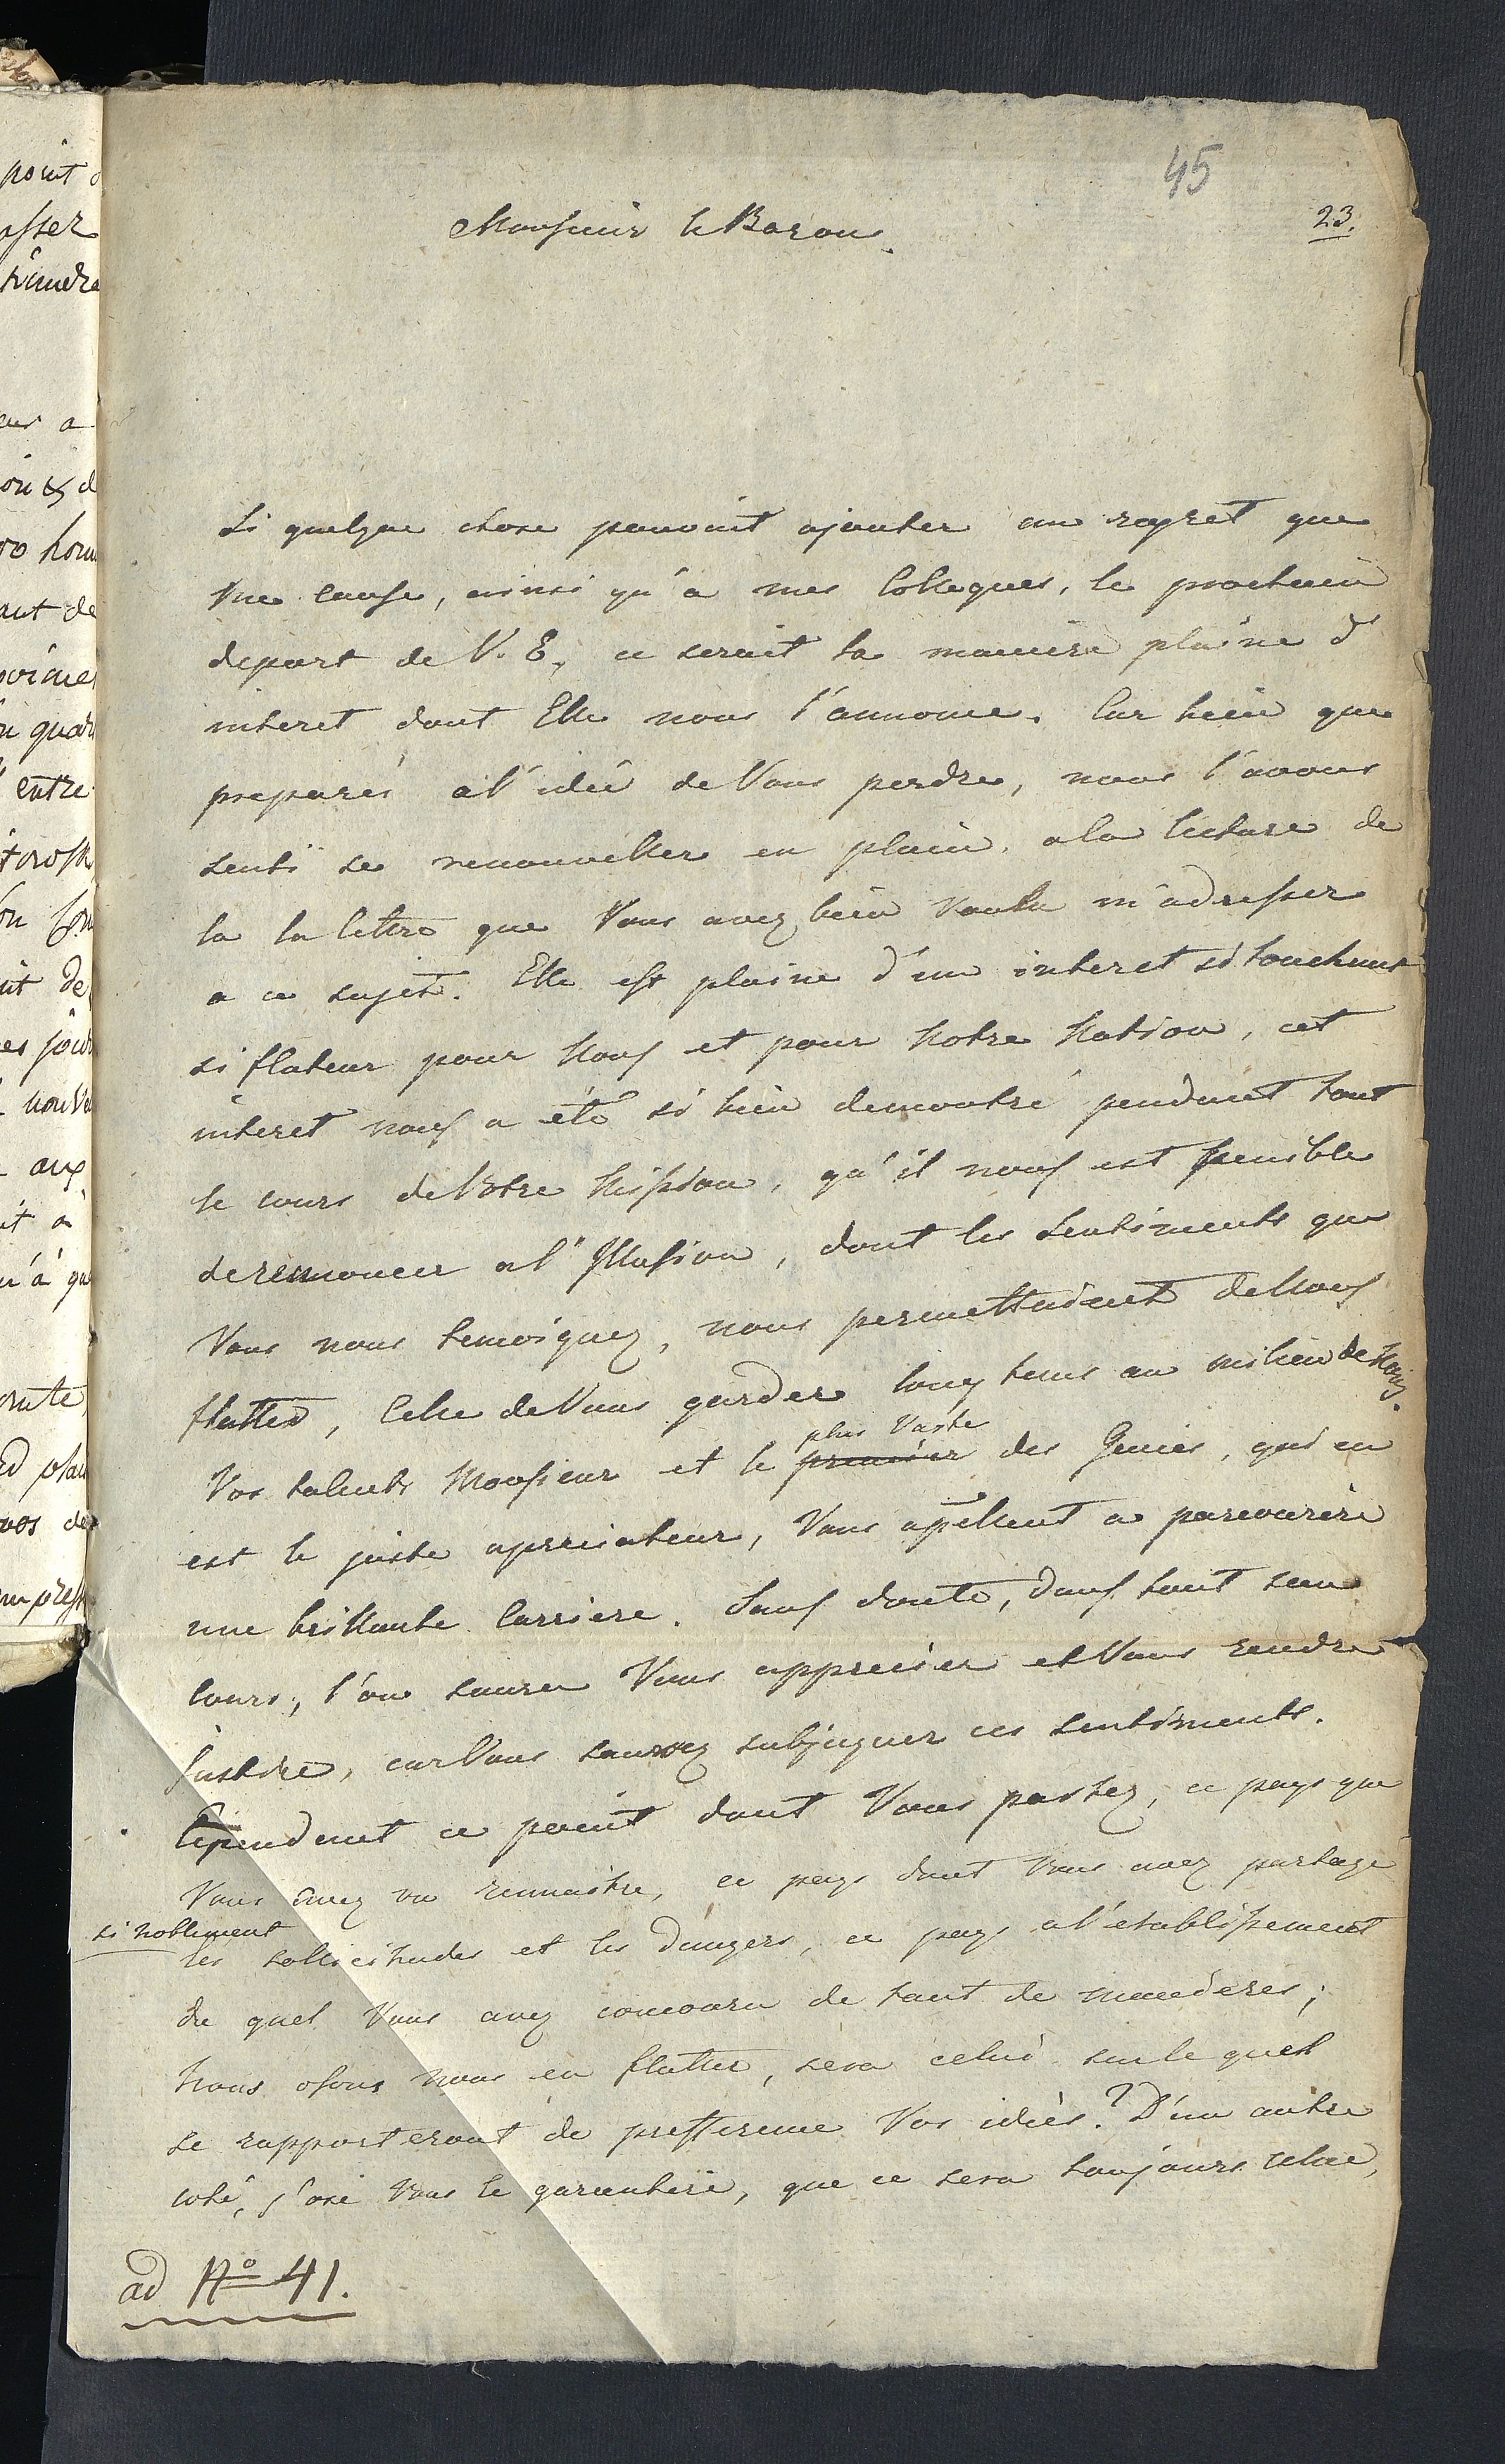 45
23.
Monsieur le Baron.
Si quelque chose pouvait ajouter au regret que
me cause, ainsi qu'a mes Collegues, le prochain
depart de V. E., ce serait la maniere plaine d'
interet dont Elle nous l'annonce. Car bien que
preparés a l'idée de Vous perdre, nous l'avons
senti se renouveller en plain, a la lecture de
la la lettre que Vous avez bien voulu m'adresser
a ce sujet. Elle est plaine d'un interet si touchant
si flateur pour Nous et pour Notre Nation, cet
interet nous a eté si bien demontré pendant tout
le cours de Votre Mission, qu'il nous est penible
de rennoncer a l'Illusion, dont les sentiments que
Vous nous temoignez, nous permettaient de Nous
flatter, Celle de Vous garder long tems au milieu de Nous.
plus Vaste
Vos talents Monsieur et le premier des Genies, qui en
est le juste apreciateur, Vous apellent a parcourire
une brillante Carriere. Sans doute, dans tout son
cours, l'on saura Vous apprecier et Vous rendre
justice, car Vous saurez subjuguer ces sentiments.
Cependent ce point dont Vous partez, ce pays que
Vous avez vu rennaitre, ce pays dont Vous avez partagé
si noblement
les sollicitudes et les dangers, ce pays a l'etablissement
du quel Vous avez concouru de tant de manieres;
Nous osons nous en flatter, sera celui sur le quel
se rapporteront de prefference Vos idées? D'un autre
coté, j'ose Vous le garantire, que ce sera toujours celui,
ad No 41.
point
entre